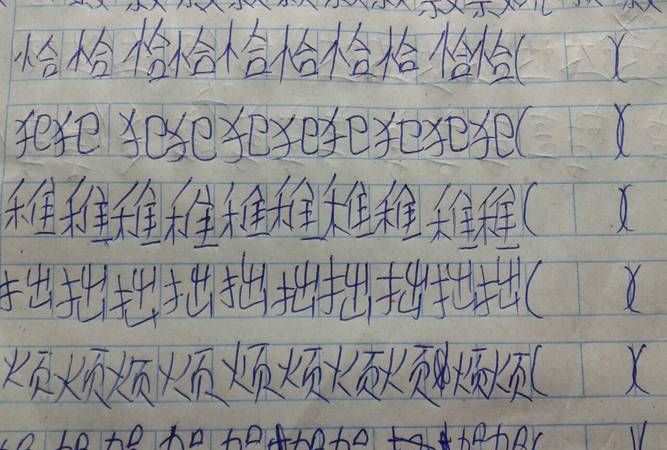 恰恰恰恰恰恰恰恰恰恰( )(
犯犯犯犯犯犯犯犯犯犯( )(
稚稚稚稚稚稚稚稚稚稚( )(
拙拙拙拙拙拙拙拙拙拙( )(
烦烦烦烦烦烦烦烦烦烦( )(